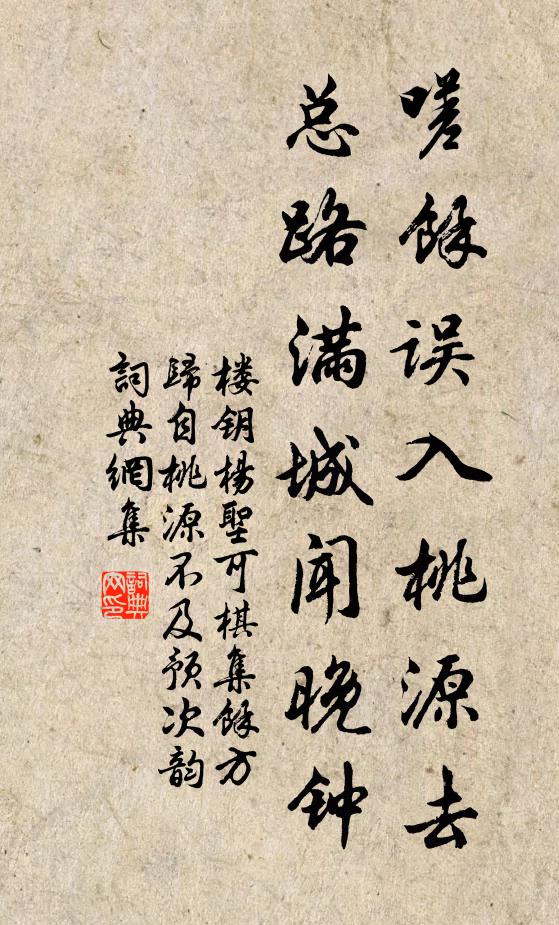 嗟餘误入桃源去
总路满城闻晚钟
楼钥杨聖可棋集餘方
歸自桃源不及预次韵
詞典網集
詞典網印